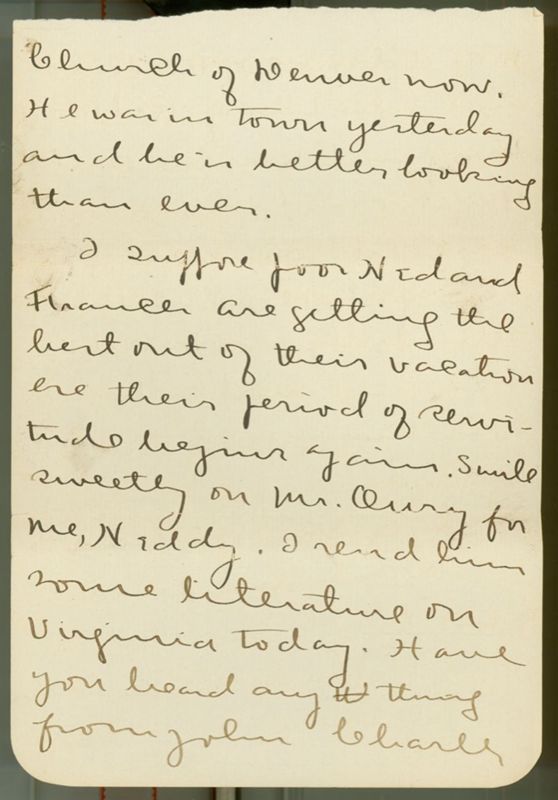 Church of Denver now.
He was in town yesterday
and he is better looking
than ever.
I suppose poor Ned and
Frances are getting the
best out of their vacation
ere their period of servi-
tude begins again. Smile
sweetly on Mr. Oury for
me, Neddy. I send him
some literature on
Virginia today. Have
you heard any th thing
from John Charles